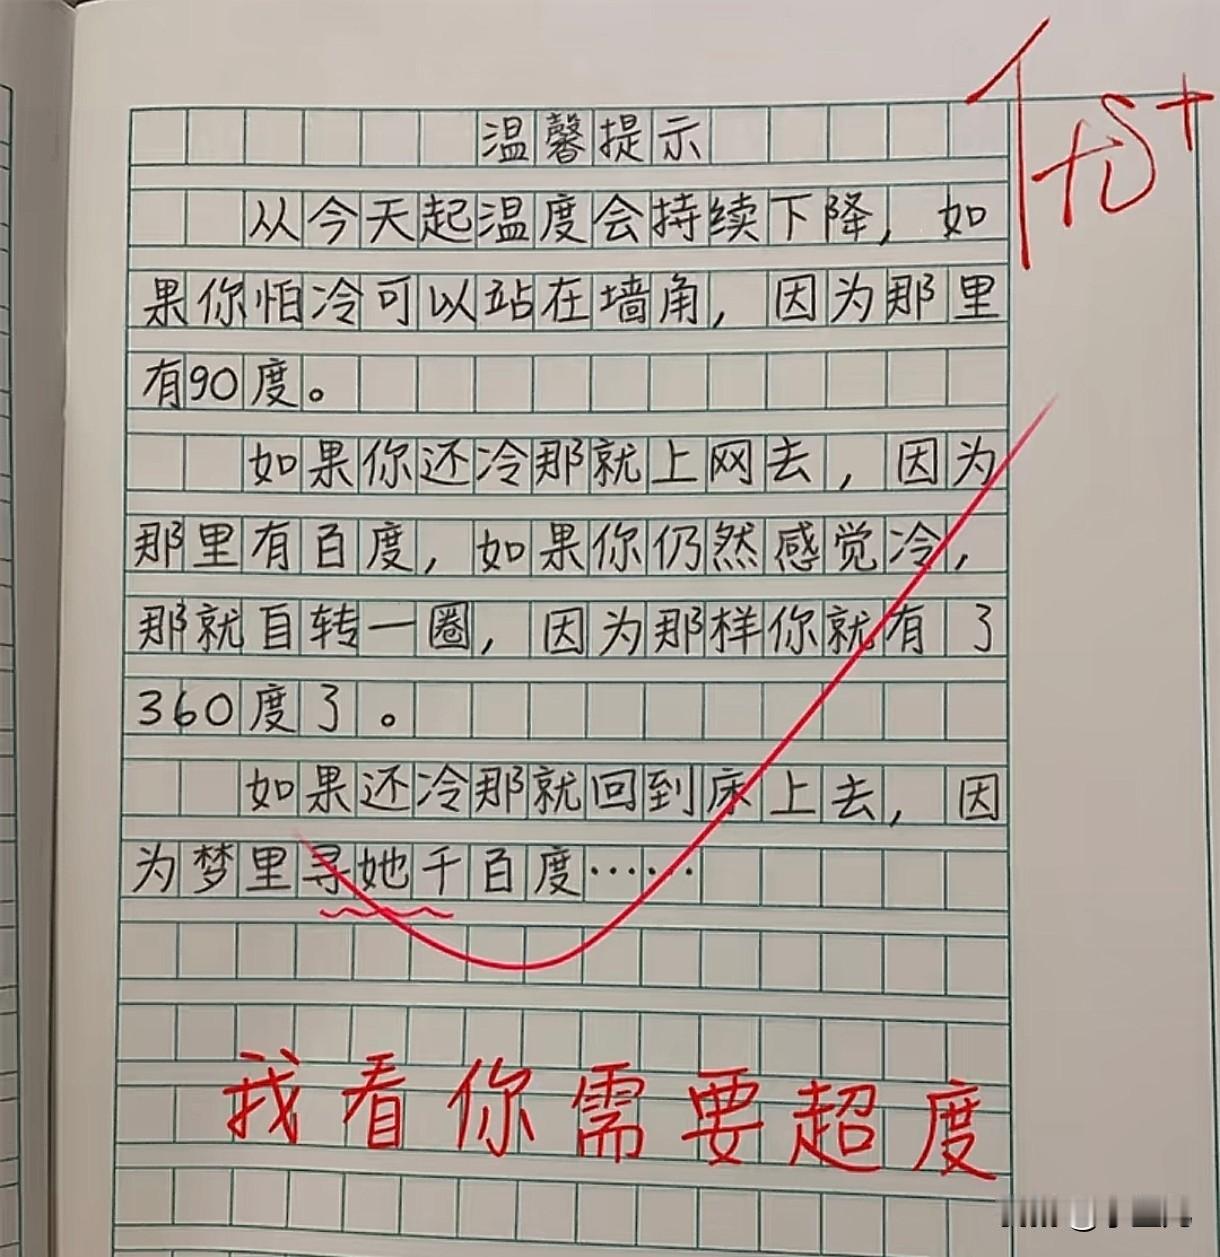 温馨提示
优+
从今天起温度会持续下降，如
果你怕冷可以站在墙角，因为那里
有90度。
如果你还冷那就上网去，因为
那里有百度，如果你仍然感觉冷，
那就自转一圈，因为那样你就有了
360度了。
如果还冷那就回到床上去，因
为梦里寻她千百度……
我看你需要超度